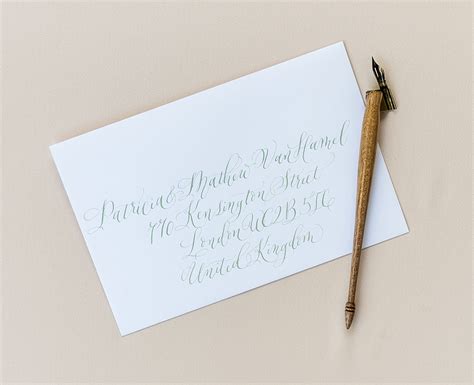 Patricia & Mathew VanHamel
770 Kensington Street
London WC2B 5II
United Kingdom